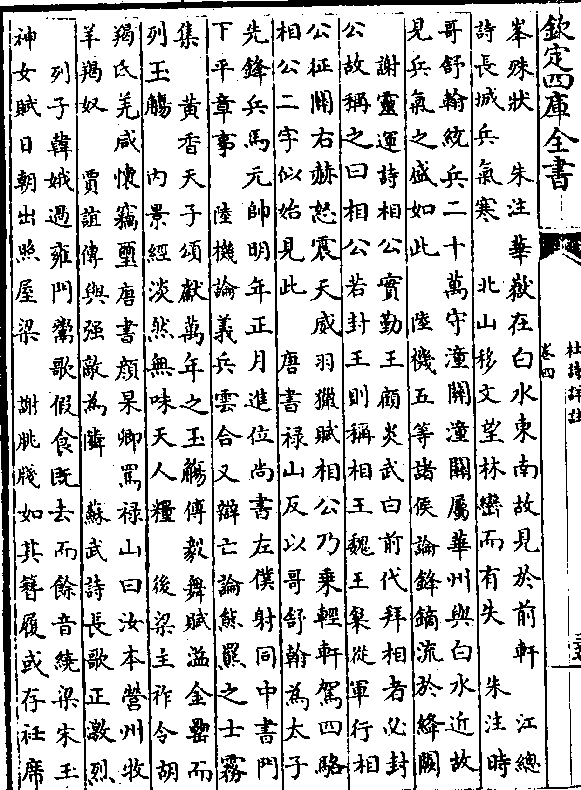 欽定四庫全書
杜詩詳註
卷四
峯殊狀　朱注華嶽在白水東南故見於前軒　江總
詩長城兵氣寒　北山移文望林巒而有失　朱注時
哥舒翰統兵二十萬守潼關潼關屬華州與白水近故
見兵氣之盛如此　陸機五等諸侯論鋒鏑流於絳闕
謝靈運詩相公實勤王顧炎武曰前代拜相者必封
公故稱之曰相公若封王則稱相王魏王粲從軍行相
公征關右赫怒震天威羽獵賦相公乃乘輕軒駕四駱
相公二字似始見此　唐書祿山反以哥舒翰為太子
先鋒兵馬元帥明年正月進位尚書左僕射同中書門
下平章事　陸機論義兵雲合又辯亡論熊羆之士霧
集　黄香天子頌獻萬年之玉觴傅毅舞賦溢金罍而
列玉觴　内景經淡然無味天人糧　後梁主祚令胡
羯氐羌咸懷竊璽唐書顔杲卿罵祿山曰汝本營州牧
羊羯奴　賈誼傳與强敵為隣　蘇武詩長歌正激烈
列子韓娥過雍門鬻歌假食既去而餘音繞梁宋玉
神女賦日朝出照屋梁　謝朓牋如其簪履或存衽席